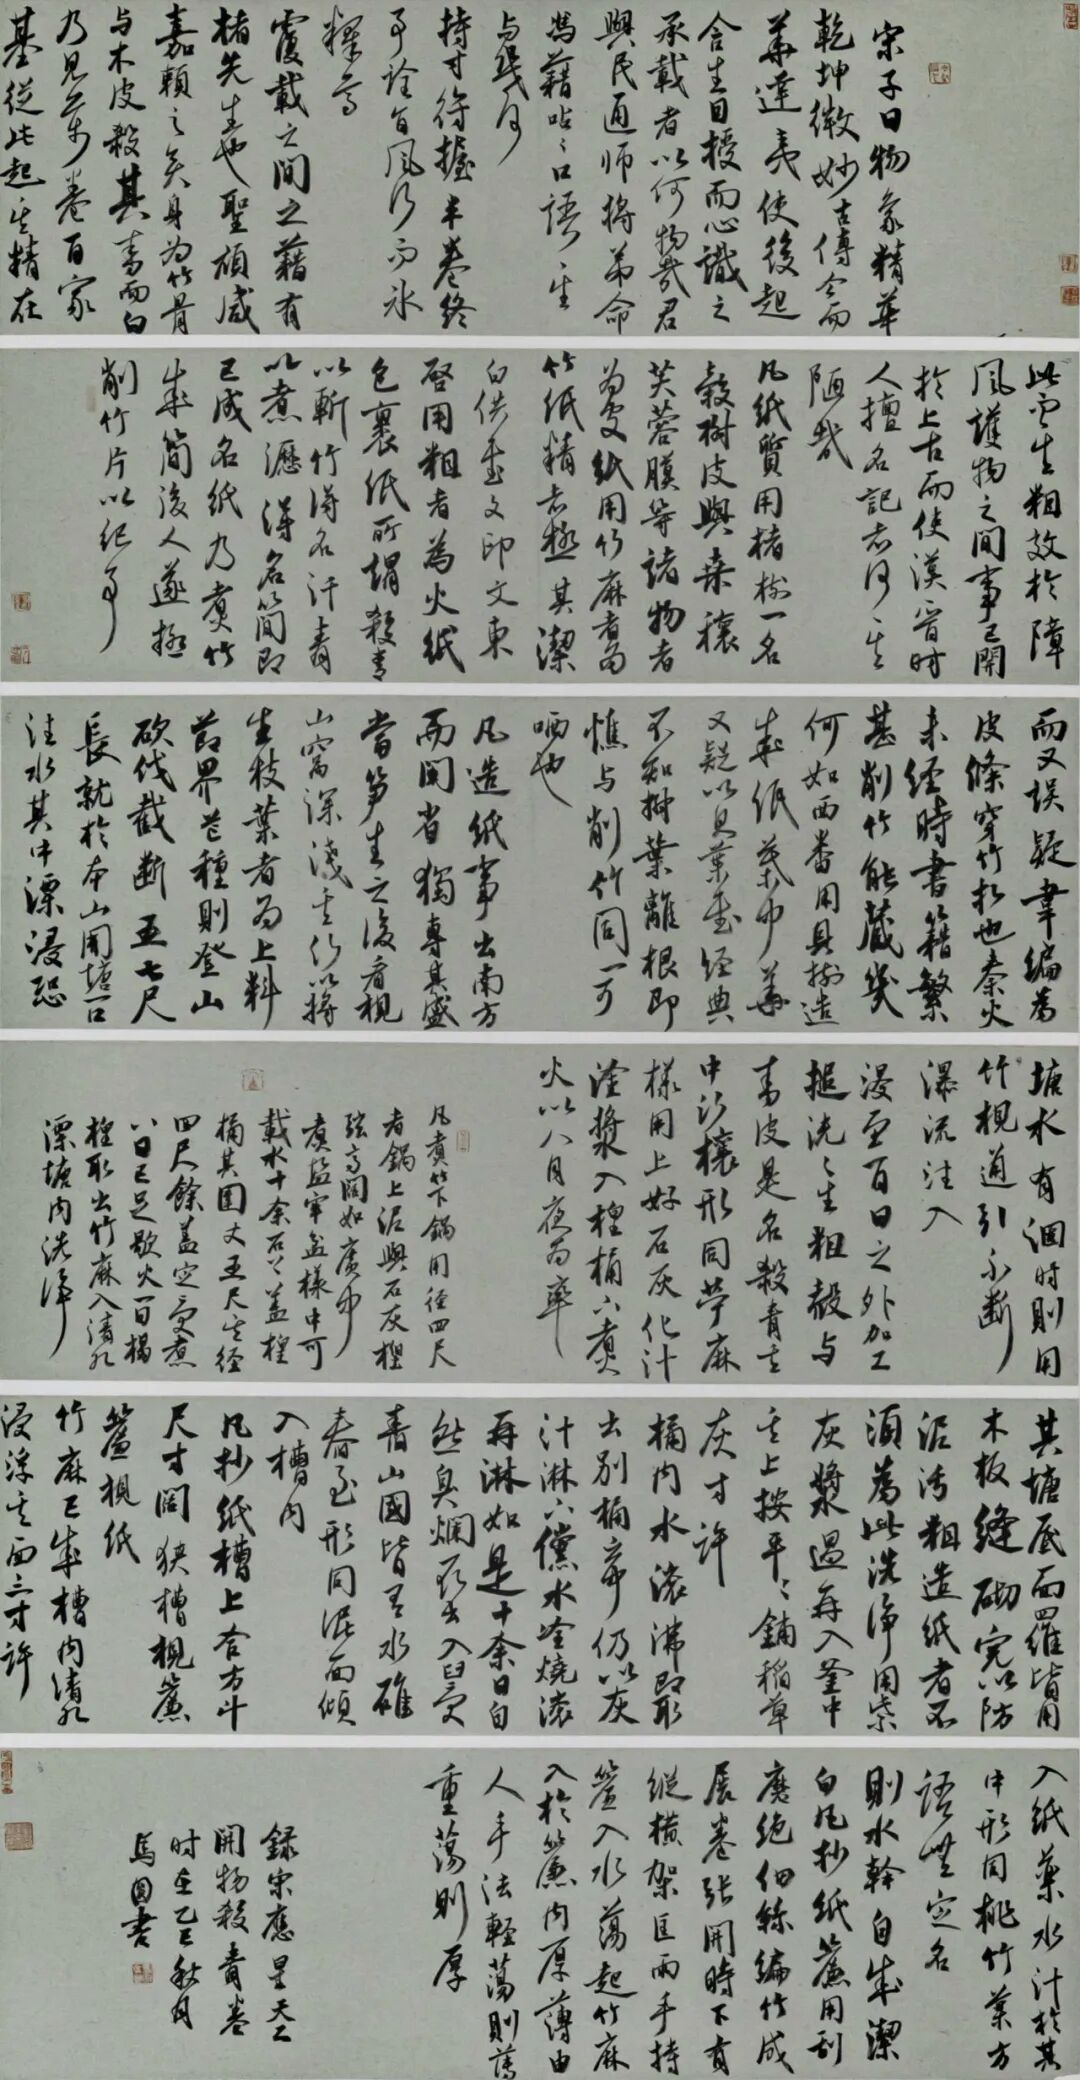 宋子曰物象精華
乾坤微妙古傳今而
華達夷使後起
含生目授而心識之
承載者以何物哉君
與民通師將弟命
馮藉呫呫口語其
與幾何
持寸符握半卷終
事詮旨風行而冰
釋焉
覆載之間之藉有
楮先生也聖頑咸
嘉賴之矣身為竹骨
與木皮殺其青而白
乃見萬卷百家
基從此起其精在
此而其粗效於障
風護物之間事已開
於上古而使漢晉時
人擅名記者何其
陋哉
凡紙質用楮樹一名
穀樹皮與桑穰
芙蓉膜等諸物者
為皮紙用竹麻者為
竹紙精者極其潔
白供書文印文柬
啓用粗者為火紙
包裹紙所謂殺青
以斬竹得名汗青
以煮瀝得名簡即
已成名紙乃煮竹
成簡後人遂疑
削竹片以紀事
而又誤疑韋編為
皮條穿竹札也秦火
未經時書籍繁
甚削竹能藏幾
何如西番用貝樹造
成紙葉中華
又疑以貝葉書經典
不知樹葉離根即
憔與削竹同一可
哂也
凡造紙事出南方
而閩省獨專其盛
當筍生之後看視
山窩深淺其竹以將
生枝葉者為上料
節界芒種則登山
砍伐截斷五七尺
長就於本山開塘一口
注水其中漂浸恐
塘水有涸時則用
竹梘通引不斷
瀑流注入
浸至百日之外加工
搥洗洗去粗殼與
青皮是名殺青其
中竹穰形同苧麻
樣用上好石灰化汁
塗漿入楻桶下煮
火以八日夜為率
凡煮竹下鍋用徑四尺
者鍋上泥與石灰捏
弦高闊如廣中
煮鹽牢盆樣中可
載水十余石上蓋楻
桶其圍丈五尺其徑
四尺餘蓋定受煮
八日已足歇火一日揭
楻取出竹麻入清水
漂塘內洗淨
其塘底面四維皆用
木板縫砌完以防
泥污粗造紙者不
須為此洗淨用柴
灰漿過再入釜中
其上按平平鋪稻草
灰寸許
桶內水滾沸即取
出別桶中仍以灰
汁淋下儻水冷燒滾
再淋如是十余日自
然臭爛取出入臼受
舂山國皆有水碓
舂至形同泥面傾
入槽內
凡抄紙槽上合方斗
尺寸闊狹槽視簾
簾視紙
竹麻已成槽內清水
浸浮其面三寸許
入紙藥水汁於其
中形同桃竹葉方
語無定名
則水乾自成潔
白凡抄紙簾用刮
磨絕細絲編竹成
展卷張開時下有
縱橫架匡兩手持
簾入水蕩起竹麻
入於簾內厚薄由
人手法輕蕩則薄
重蕩則厚
録宋應星天工
開物殺青卷
时在乙巳秋月
馬圓書